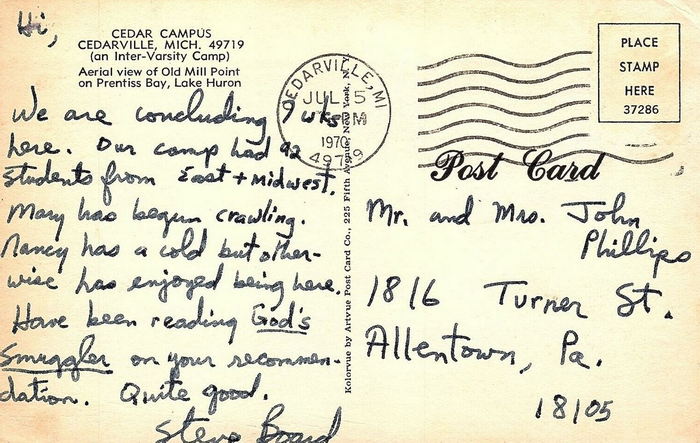 Hi,
CEDAR CAMPUS
CEDARVILLE, MICH. 49719
(an Inter-Varsity Camp)
Aerial view of Old Mill Point
on Prentiss Bay, Lake Huron
We are concluding 7 wks
here. Our camp had 92
students from East + Midwest.
Mary has begun crawling.
Nancy has a cold but other-
wise has enjoyed being here.
Have been reading God's
Smuggler on your recommen-
dation. Quite good.
Steve Board
CEDARVILLE, MI
JUL 5
PM
1970
49719
Kolorvue by Artvue Post Card Co., 225 Fifth Avenue, New York, N.
PLACE
STAMP
HERE
37286
Post Card
Mr. and Mrs. John
Phillips
1816 Turner St.
Allentown, Pa.
18105